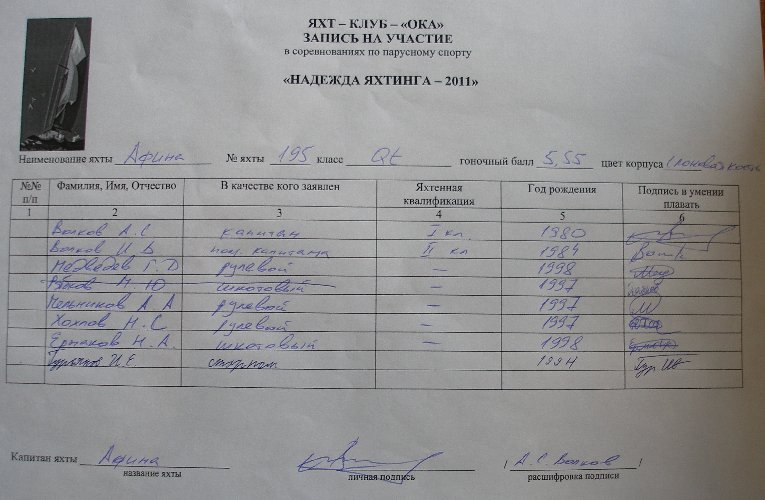 ЯХТ – КЛУБ – «ОКА»
ЗАПИСЬ НА УЧАСТИЕ
в соревнованиях по парусному спорту
«НАДЕЖДА ЯХТИНГА – 2011»
Наименование яхты Афина № яхты 195 класс Qt гоночный балл 5,55 цвет корпуса слоновая кость
№№ п/п Фамилия, Имя, Отчество В качестве кого заявлен Яхтенная квалификация Год рождения Подпись в умении плавать
1 2 3 4 5 6
Волков А.С капитан I кл. 1980
Волков И.В пом. капитана II кл 1984
Медведев Г.D рулевой — 1998
Рябков М.Ю шкотовый — 1997
Мельников А А рулевой — 1997
Хохлов Н.С рулевой — 1997
Ермаков Н.А. шкотовый — 1998
И.Е. 1994
Капитан яхты Афина / А.С. Волков /
название яхты личная подпись расшифровка подписи